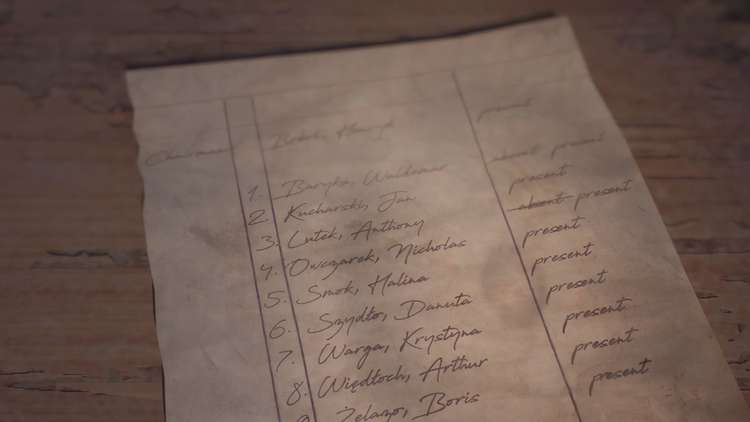 Chairman Henryk present
1. Baryka, Waldemar absent present
2. Kucharski, Jan present
3. Lutek, Anthony absent present
4. Owczarek, Nicholas present
5. Smok, Halina present
6. Szydło, Danuta present
7. Warga, Krystyna present
8. Więdłoch, Arthur present
9. Żelazo, Boris present